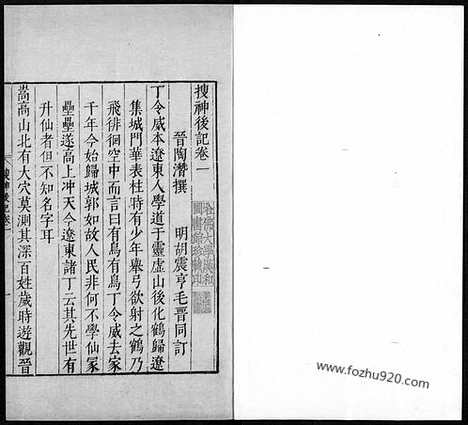 搜神後記卷一
晉陶濳撰　明胡震亨毛晉同訂
丁令威本遼東人學道于靈虛山後化鶴歸遼
集城門華表柱時有少年舉弓欲射之鶴乃
飛徘徊空中而言曰有鳥有鳥丁令威去家
千年今始歸城郭如故人民非何不學仙冢
壘壘遂高上冲天今遼東諸丁云其先世有
升仙者但不知名字耳
嵩高山北有大穴莫測其深百姓歲時遊觀晉
搜神後記卷一
一
www.fozhu920.com